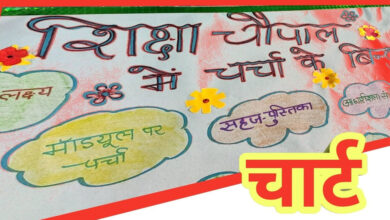 शिक्षा चौपाल
में चर्चा के बिन
लक्ष्य
माड्यूल पर
चर्चा
सहज-पुस्तिका
चार्ट